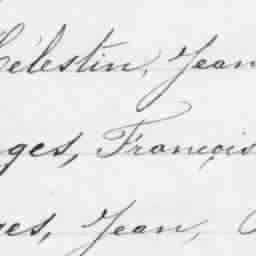 Célestin, Jean
ges, François
es, Jean,